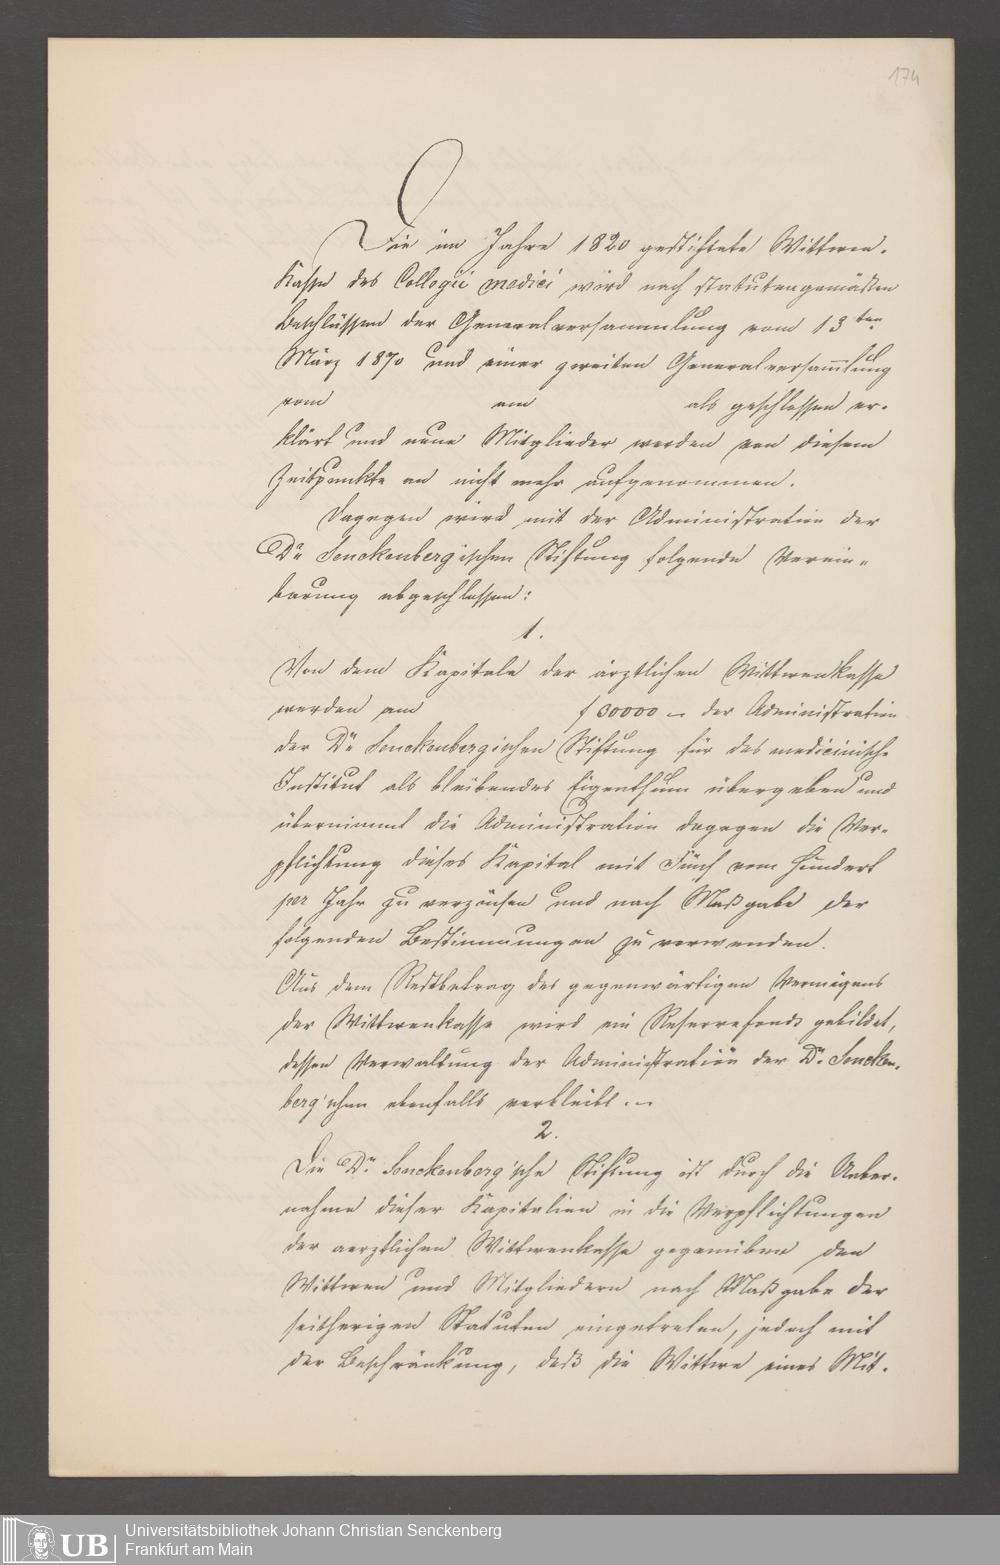 174
Die im Jahre 1820 gestiftete Wittwen-
Kasse des Collegii medici wird nach statutengemäßen
Beschlüssen der Generalversammlung vom 13ten
März 1870 und einer zweiten Generalversam̄lung
vom am als geschlossen er-
klärt und neue Mitglieder werden von diesem
Zeitpunkte an nicht mehr aufgenommen.
Dagegen wird mit der Administration der
Dr. Senckenbergischen Stiftung folgende Verein-
barung abgeschlossen:
1.
Von dem Kapitale der ärztlichen Wittwenkasse
werden am f 30000 — der Administration
der Dr. Senckenbergischen Stiftung für das medicinische
Institut als bleibendes Eigenthum übergeben und
übernimmt die Administration dagegen die Ver-
pflichtung dieses Kapital mit Fünf vom Hundert
per Jahr zu verzinsen und nach Maßgabe der
folgenden Bestimmungen zu verwenden.
Aus dem Restbetrag des gegenwärtigen Vermögens
der Wittwenkasse wird ein Reservefonds gebildet,
dessen Verwaltung der Administration der Dr. Sencken-
berg'schen ebenfalls verbleibt. —
2.
Die Dr. Senckenberg'sche Stiftung ist durch die Ueber-
nahme dieser Kapitalien in die Verpflichtungen
der aerztlichen Wittwenkasse gegenüber den
Wittwen und Mitgliedern nach Maßgabe der
seitherigen Statuten eingetreten, jedoch mit
der Beschränkung, daß die Wittwe eines Mit-
UB
Universitätsbibliothek Johann Christian Senckenberg
Frankfurt am Main